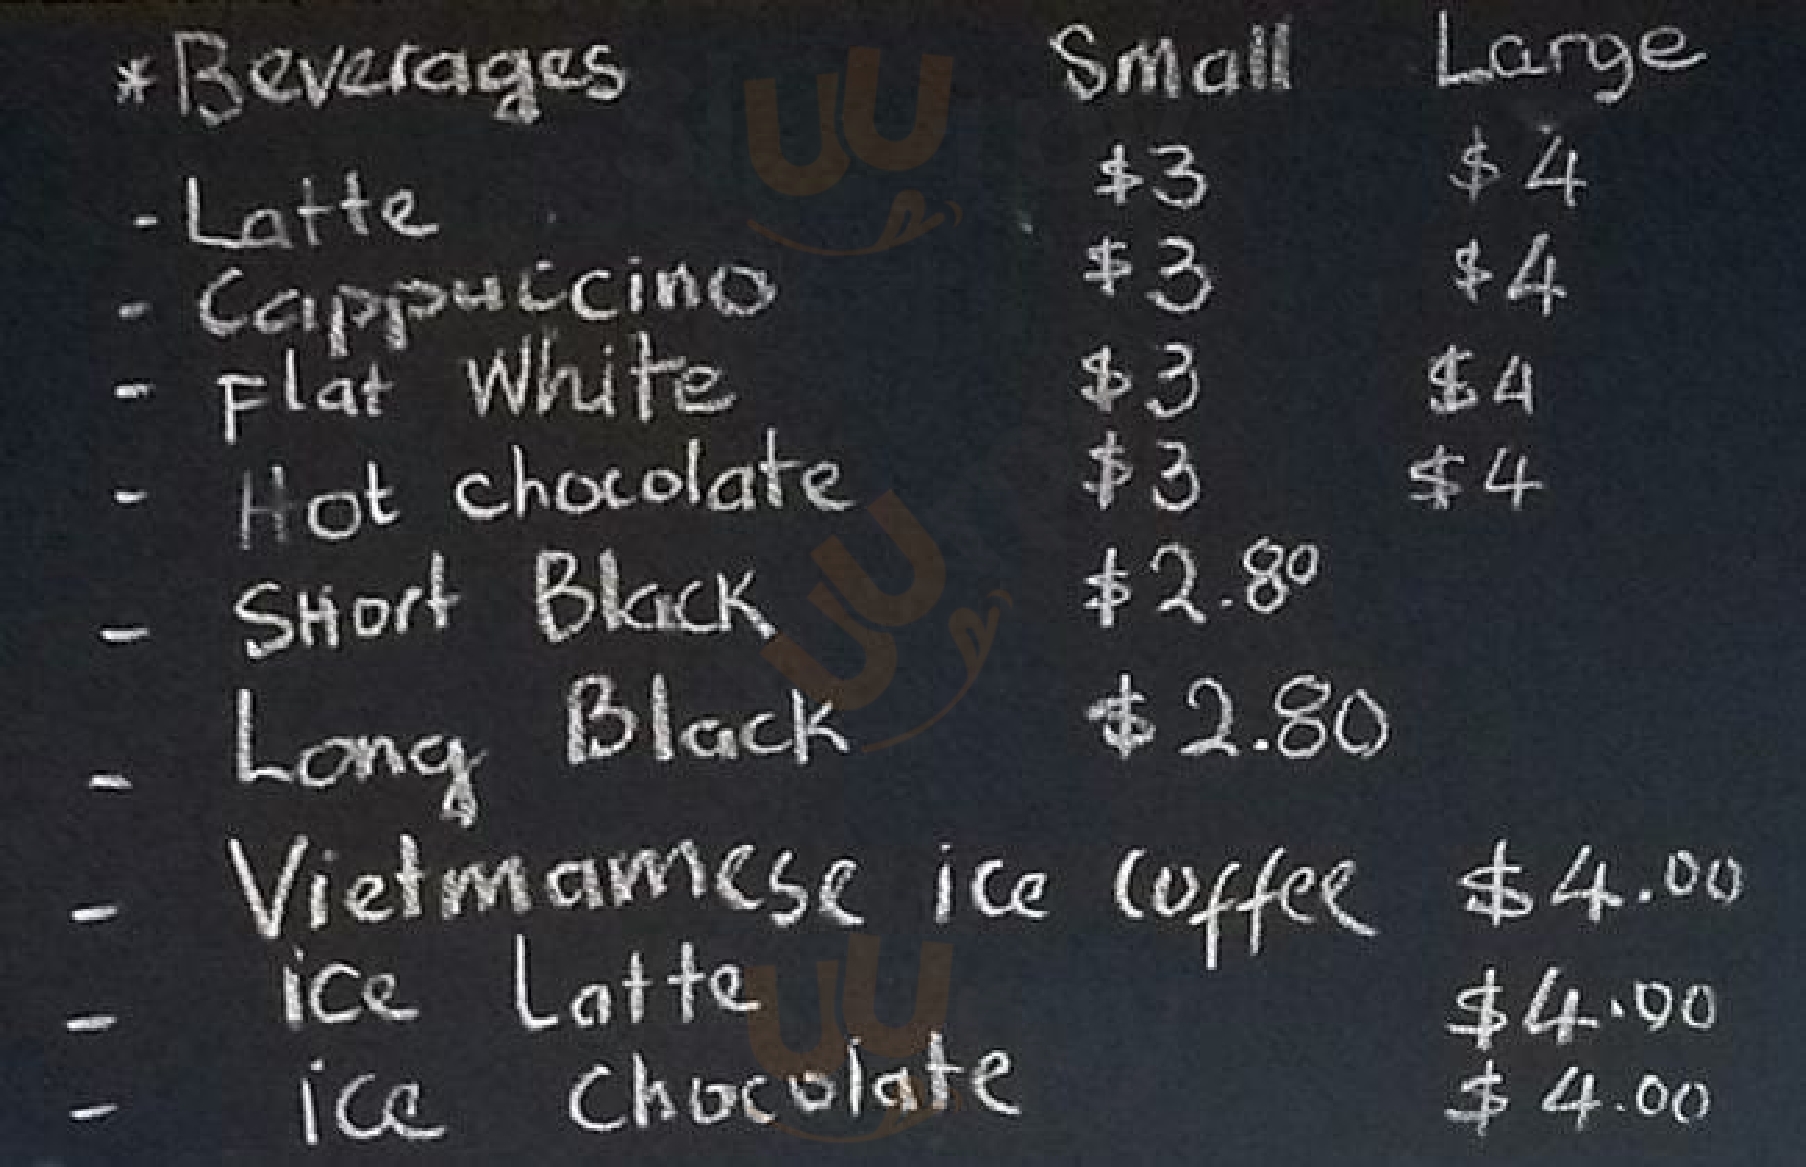 *Beverages Small Large
- Latte $3 $4
- Cappuccino $3 $4
- Flat White $3 $4
- Hot chocolate $3 $4
- SHort Black $2.80
- Long Black $2.80
- Vietmamese ice coffee $4.00
- ice Latte $4.00
- ice chocolate $4.00